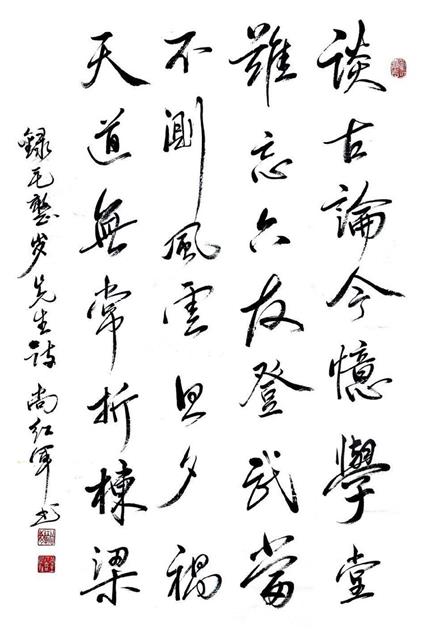 谈古論今憶學堂
難忘六友登武當
不測風雲旦夕禍
天道無常折棟梁
錄毛岁先生詩 尚红军书